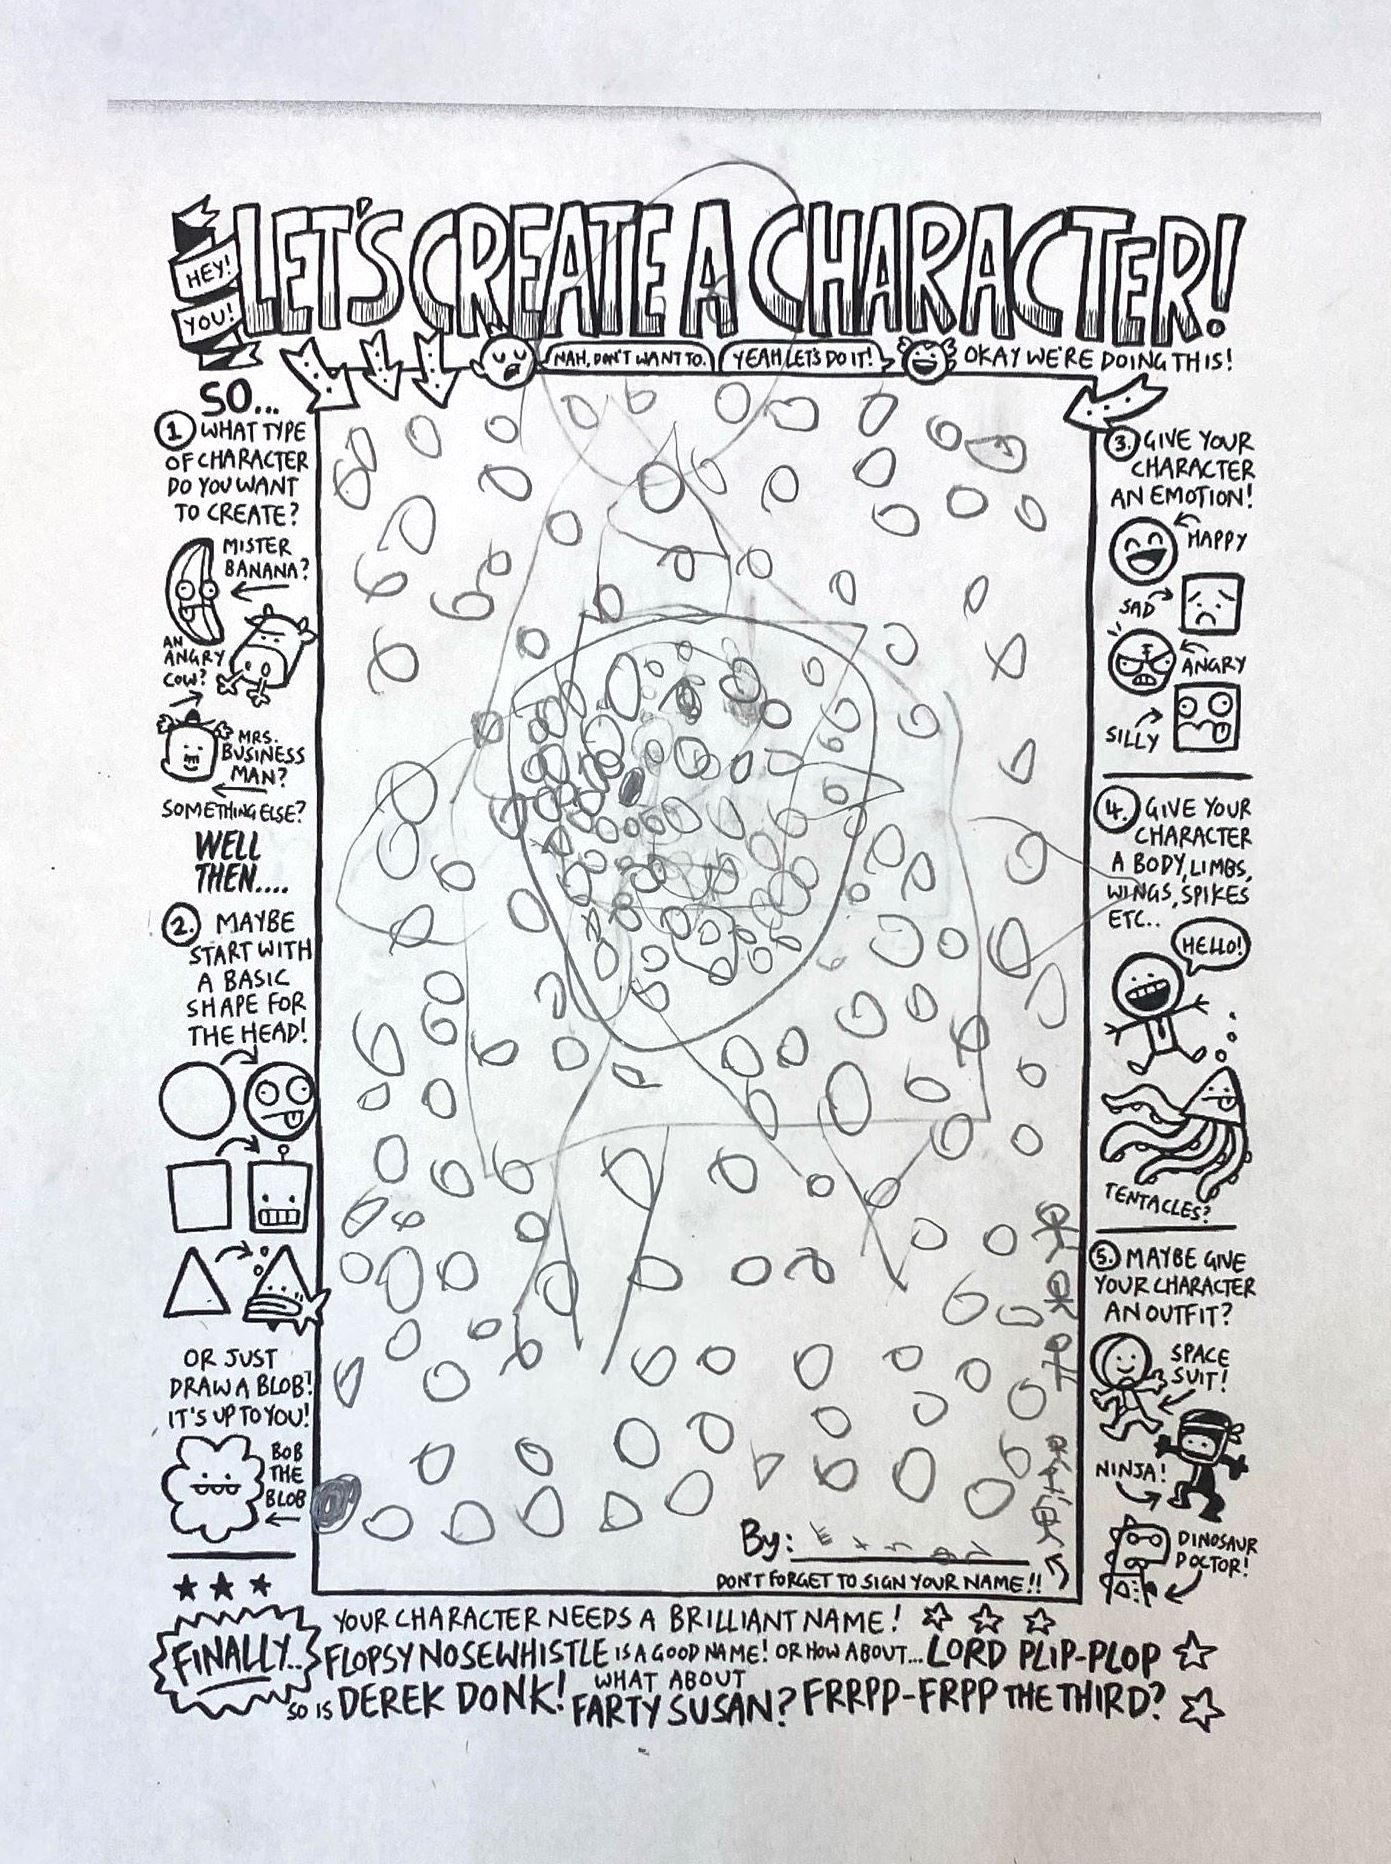 HEY!
YOU!
LET'S CREATE A CHARACTER!
NAH, DON'T WANT TO.
YEAH LET'S DO IT!
OKAY WE'RE DOING THIS!
SO...
1 WHAT TYPE
OF CHARACTER
DO YOU WANT
TO CREATE?
MISTER
BANANA?
AN
ANGRY
COW?
MRS.
BUSINESS
MAN?
SOMETHING ELSE?
WELL
THEN....
2. MAYBE
START WITH
A BASIC
SHAPE FOR
THE HEAD!
OR JUST
DRAW A BLOB!
IT'S UP TO YOU!
BOB
THE
BLOB
3. GIVE YOUR
CHARACTER
AN EMOTION!
HAPPY
SAD
ANGRY
SILLY
4. GIVE YOUR
CHARACTER
A BODY, LIMBS,
WINGS, SPIKES
ETC..
HELLO!
TENTACLES?
5. MAYBE GIVE
YOUR CHARACTER
AN OUTFIT?
SPACE
SUIT!
NINJA!
DINOSAUR
DOCTOR!
By:
DON'T FORGET TO SIGN YOUR NAME!!
FINALLY...
YOUR CHARACTER NEEDS A BRILLIANT NAME!
FLOPSY NOSEWHISTLE IS A GOOD NAME! OR HOW ABOUT... LORD PLIP-PLOP
SO IS DEREK DONK! WHAT ABOUT FARTY SUSAN? FRRPP-FRPP THE THIRD?